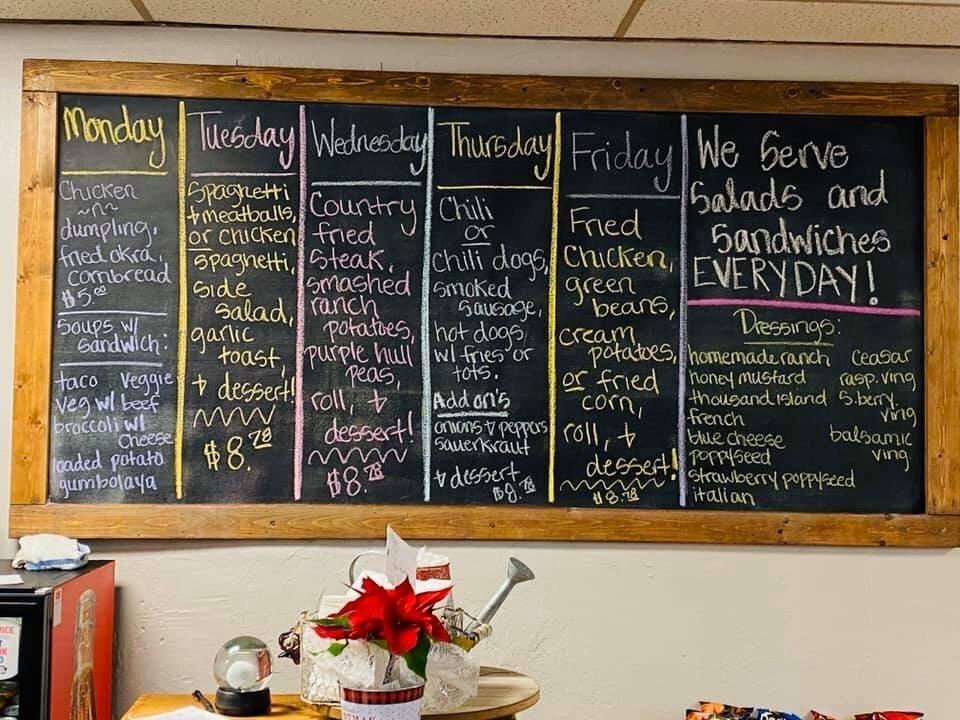 Monday
Chicken
~n~
dumpling,
fried okra,
cornbread
$5.00
Soups w/
sandwich:
taco Veggie
veg w/ beef
broccoli w/
Cheese
loaded potato
gumbolaya
Tuesday
Spaghetti
+ meatballs,
or chicken
spaghetti,
side
salad,
garlic
toast,
+ dessert!
$8.78
Wednesday
Country
fried
steak,
smashed
ranch
potatoes,
purple hull
peas,
roll, +
dessert!
$8.78
Thursday
Chili
or
chili dogs,
smoked
sausage,
hot dogs
w/ fries or
tots.
Add on's
onions + peppers
sauerkraut
+ dessert
$8.78
Friday
Fried
Chicken,
green
beans,
cream
potatoes,
or fried
corn,
roll, +
dessert!
$8.78
We Serve
Salads and
Sandwiches
EVERYDAY!
Dressings:
homemade ranch
honey mustard
thousand island
french
blue cheese
poppyseed
strawberry poppyseed
italian
Ceasar
rasp. ving
S.berry
ving
balsamic
ving